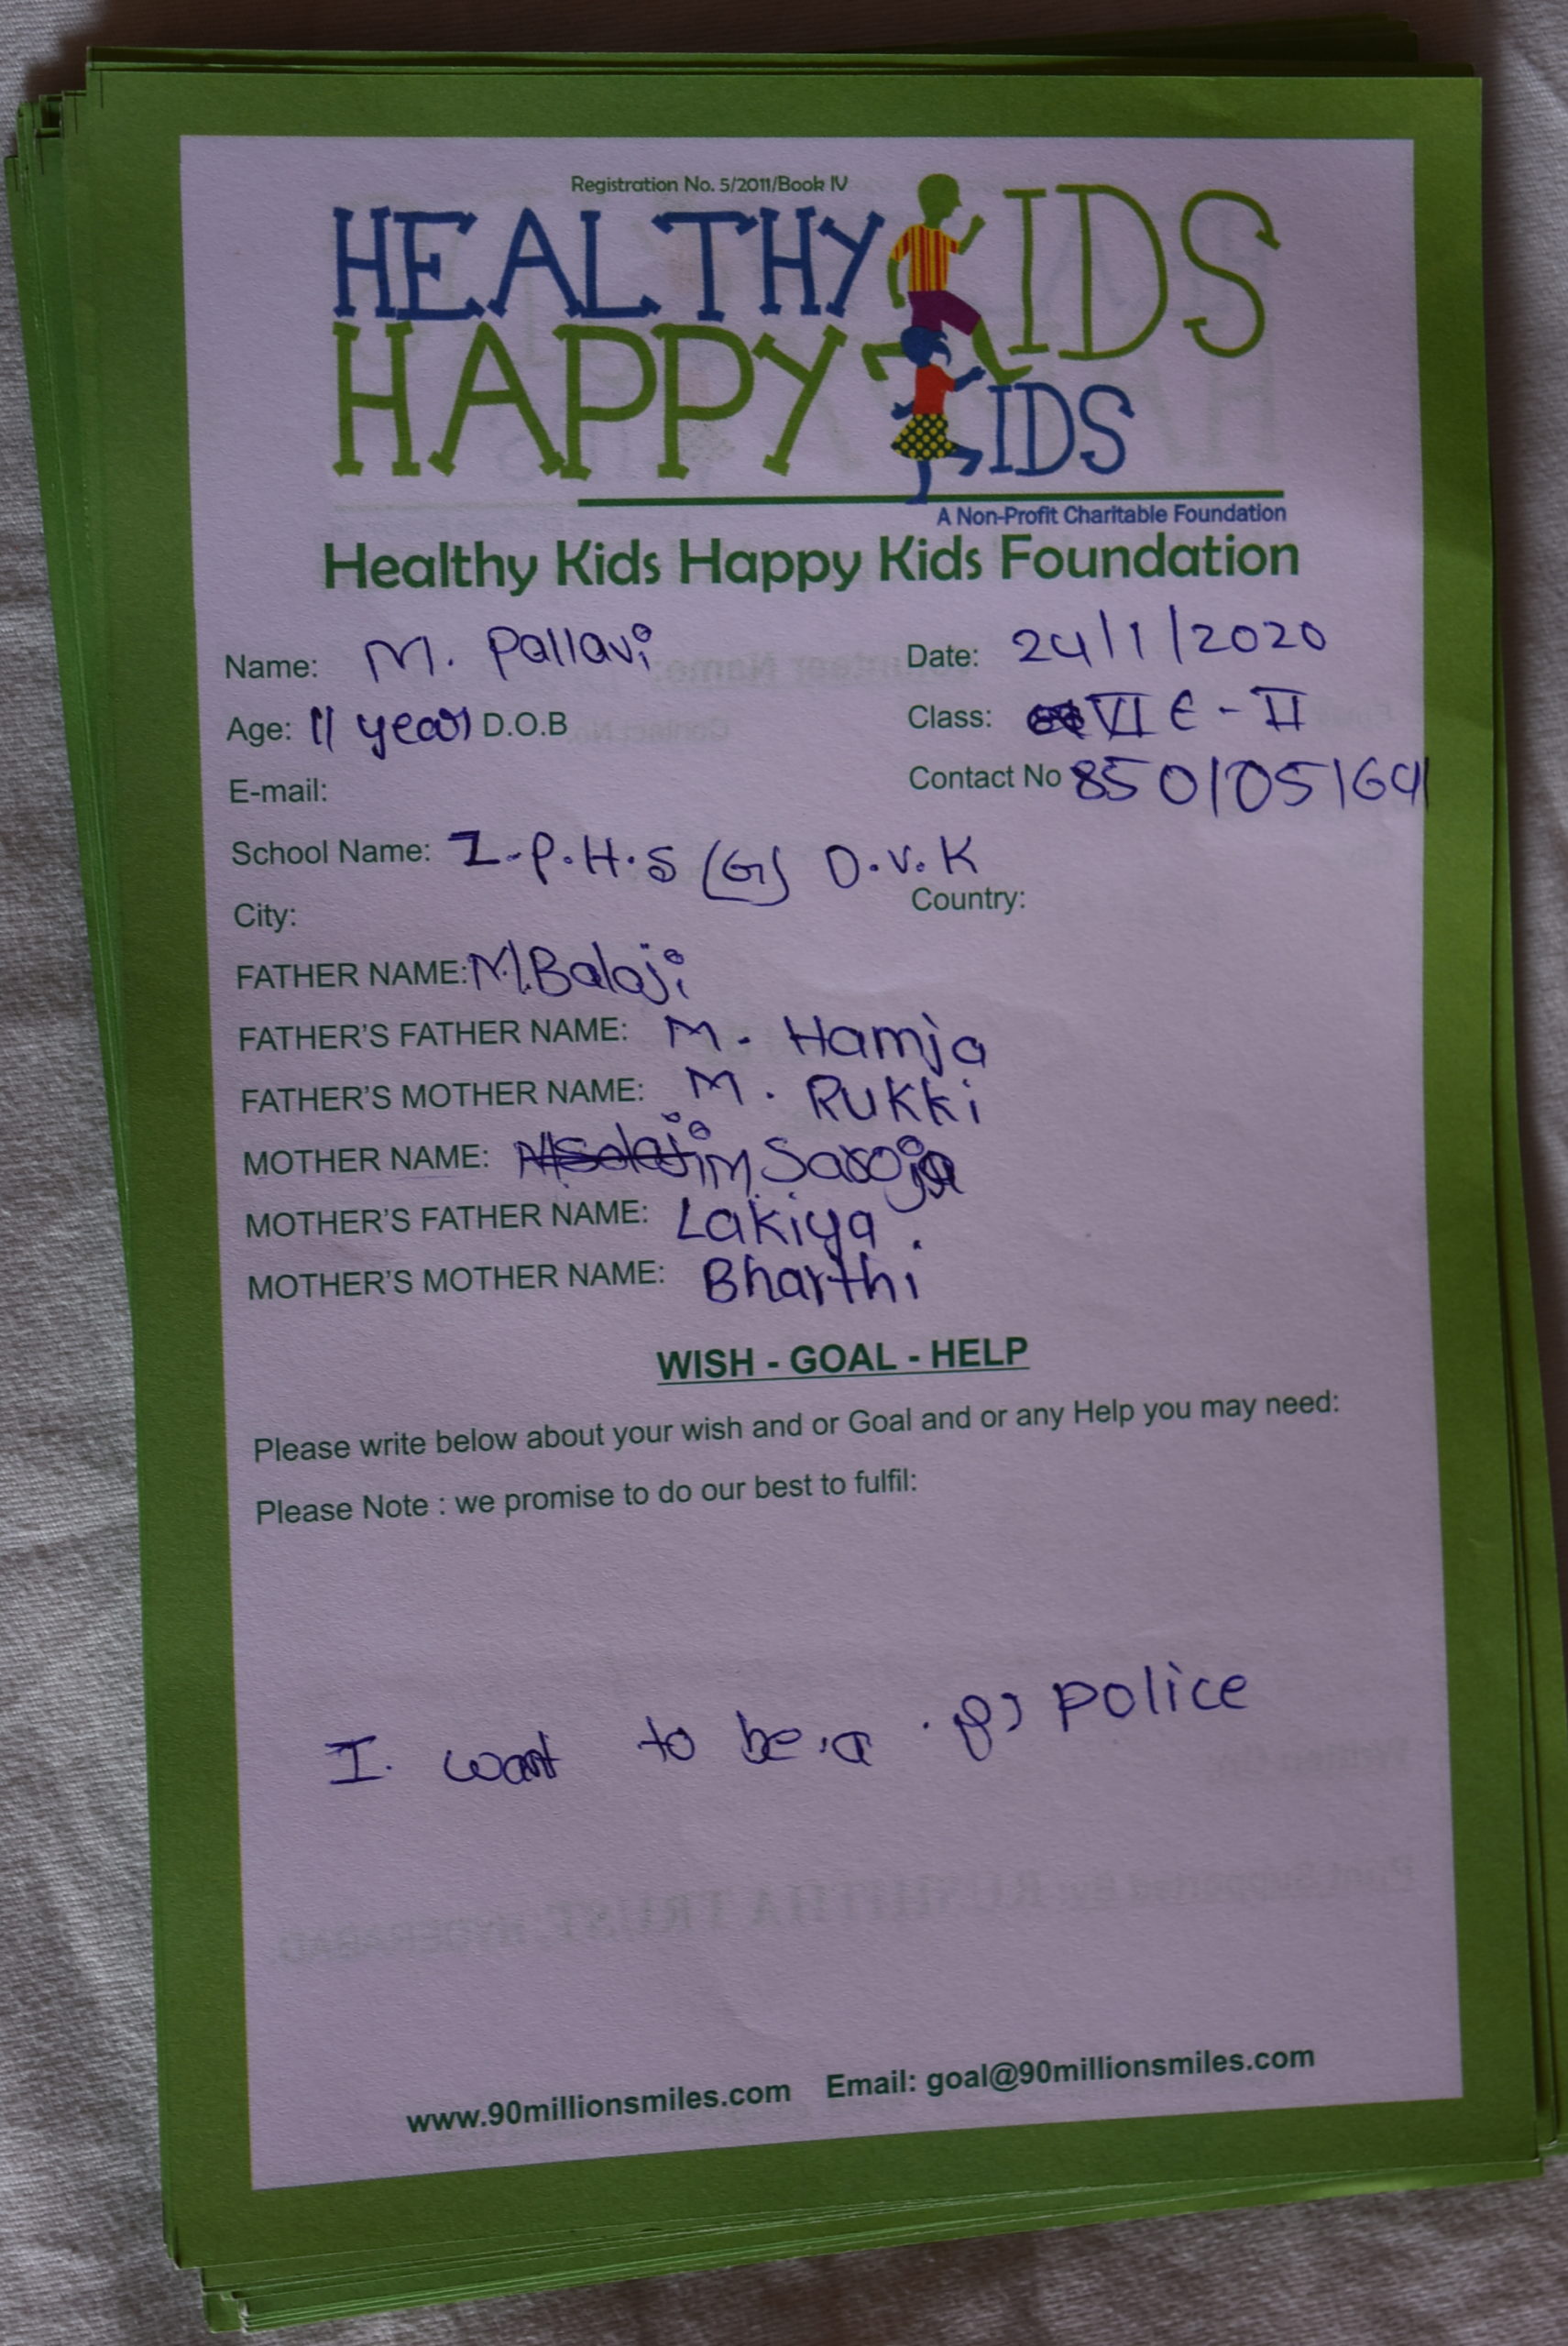 Registration No. 5/2011/Book IV
HEALTHY KIDS
HAPPY KIDS
A Non-Profit Charitable Foundation
Healthy Kids Happy Kids Foundation
Name: M. Pallavi Date: 24/1/2020
Age: 11 years D.O.B Class: VI E - II
E-mail: Contact No 8501051641
School Name: Z.P.H.S (G) D.V.K
City: Country:
FATHER NAME: M.Balaji
FATHER'S FATHER NAME: M. Hamja
FATHER'S MOTHER NAME: M. Rukki
MOTHER NAME: M Saroja
MOTHER'S FATHER NAME: Lakiya.
MOTHER'S MOTHER NAME: Bharthi
WISH - GOAL - HELP
Please write below about your wish and or Goal and or any Help you may need:
Please Note : we promise to do our best to fulfil:
I want to be a police
www.90millionsmiles.com Email: goal@90millionsmiles.com